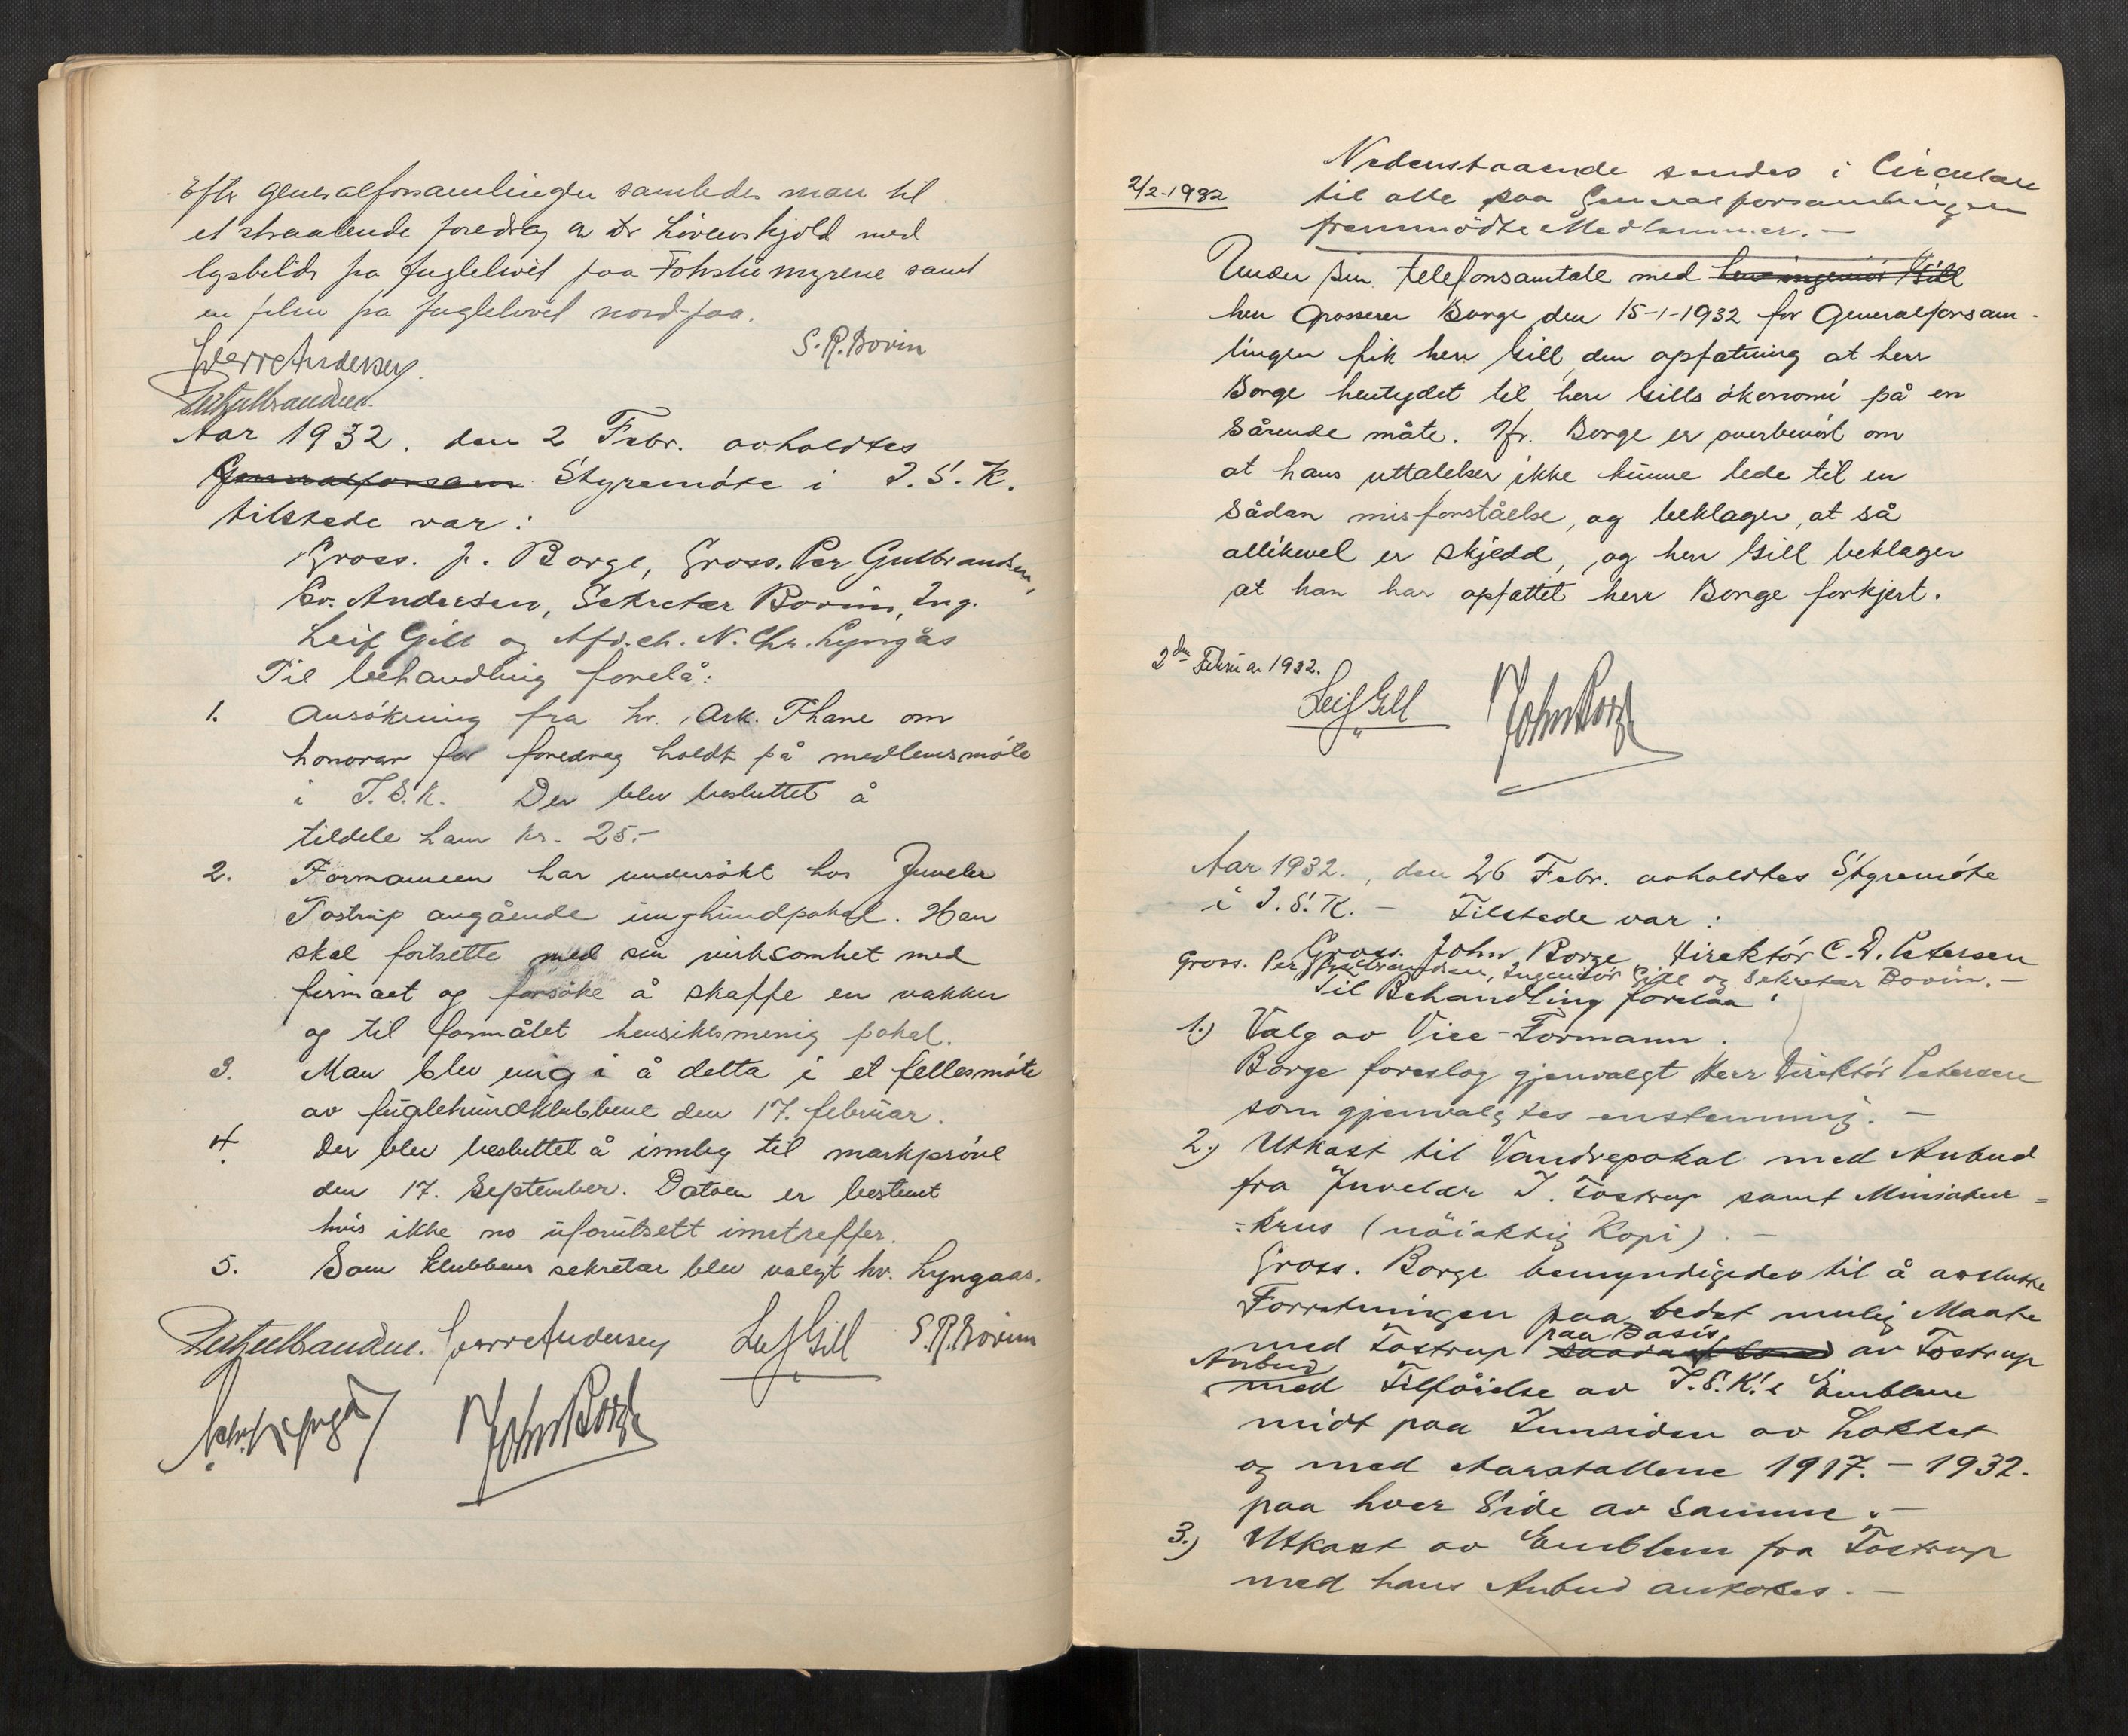 Efter generalforsamlingen samledes man til
et straalende foredrag av Dr Løvenskjold med
lysbilder fra fuglelivet paa Fokstumyrene samt
en film fra fuglelivet nord-paa.
S. R. Bovim
Sverre Andersen.
Per Gulbrandsen.
Aar 1932. den 2 Febr. avholdtes
Generalforsam Styremöte i I.S.K.
tilstede var:
Gross. J. Borge, Gross. Per Gulbrandsen,
Sv. Andersen, Sekretær Bovim, Ing.
Leif Gill og Afd.ch. N. Chr. Lyngås
Til behandling forelå:
1. Ansökning fra hr. Ark. Thane om
honorar for foredrag holdt på medlemsmöte
i I.S.K. Der blev besluttet å
tildele ham kr. 25.-
2. Formannen har undersökt hos Juveler
Tostrup angående unghundpokal. Han
skal fortsette med sin virksomhet med
firmaet og forsöke å skaffe en vakker
og til formålet hensiktsmessig pokal.
3. Man blev enig i å delta i et fellesmöte
av fuglehundklubbene den 17. februar.
4. Der blev besluttet å innby til markpröve
den 17. September. Datoen er bestemt
hvis ikke no uforutsett inntreffer.
5. Som klubbens sekretær blev valgt hr. Lyngaas.
Per Gulbrandsen. Sverre Andersen Leif Gill S.R. Bovim
John Borge
Nedenstaaende sendes i Circulære
2/2-1932 til alle paa Generalforsamlingen
fremmödte Medlemmer. —
Under sin telefonsamtale med herr ingeniör Gill
herr Grosserer Borge den 15-1-1932 för Generalforsam-
lingen fik herr Gill den opfatning at herr
Borge hentydet til herr Gills ökonomi på en
sårende måte. Hr. Borge er overbevist om
at hans uttalelser ikke kunne lede til en
sådan misforståelse, og beklager, at så
allikevel er skjedd, og herr Gill beklager
at han har opfattet herr Borge forkjert.
2den Februar 1932.
Leif Gill John Borge
Aar 1932., den 26 Febr. avholdtes Styremöte
i I.S.K. — Tilstede var:
Gross. John Borge, Direktör C. D. Petersen
Gross. Per Gulbrandsen, Ingeniör Gill og Sekretær Bovim. —
Til Behandling forelaa:
1.) Valg av Vice-Formann.
Borge foreslog gjenvalgt Herr Direktör Petersen
som gjenvalgtes enstemmig. —
2.) Utkast til Vandrepokal med Anbud
fra Juvelær J. Tostrup samt Miniatur=
=krus (nöiaktig Kopi). —
Gross. Borge bemyndigedes til å avslutte
Forretningen paa bedst mulig Maate
med Tostrup paa Basis av Tostrup
Anbud
med Tilföielse av I.S.K.'s Emblem
midt paa Innsiden av Lokket
og med Aarstallene 1917. - 1932.
paa hver Side av samme. —
3.) Utkast av Emblem fra Tostrup
med hans Anbud